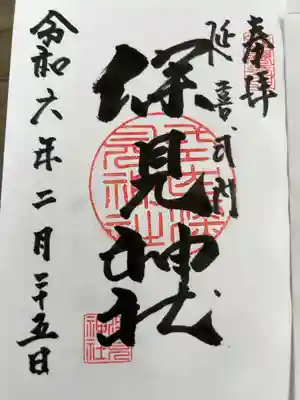 奉拝
延喜式内
深見神社
令和六年二月二十五日